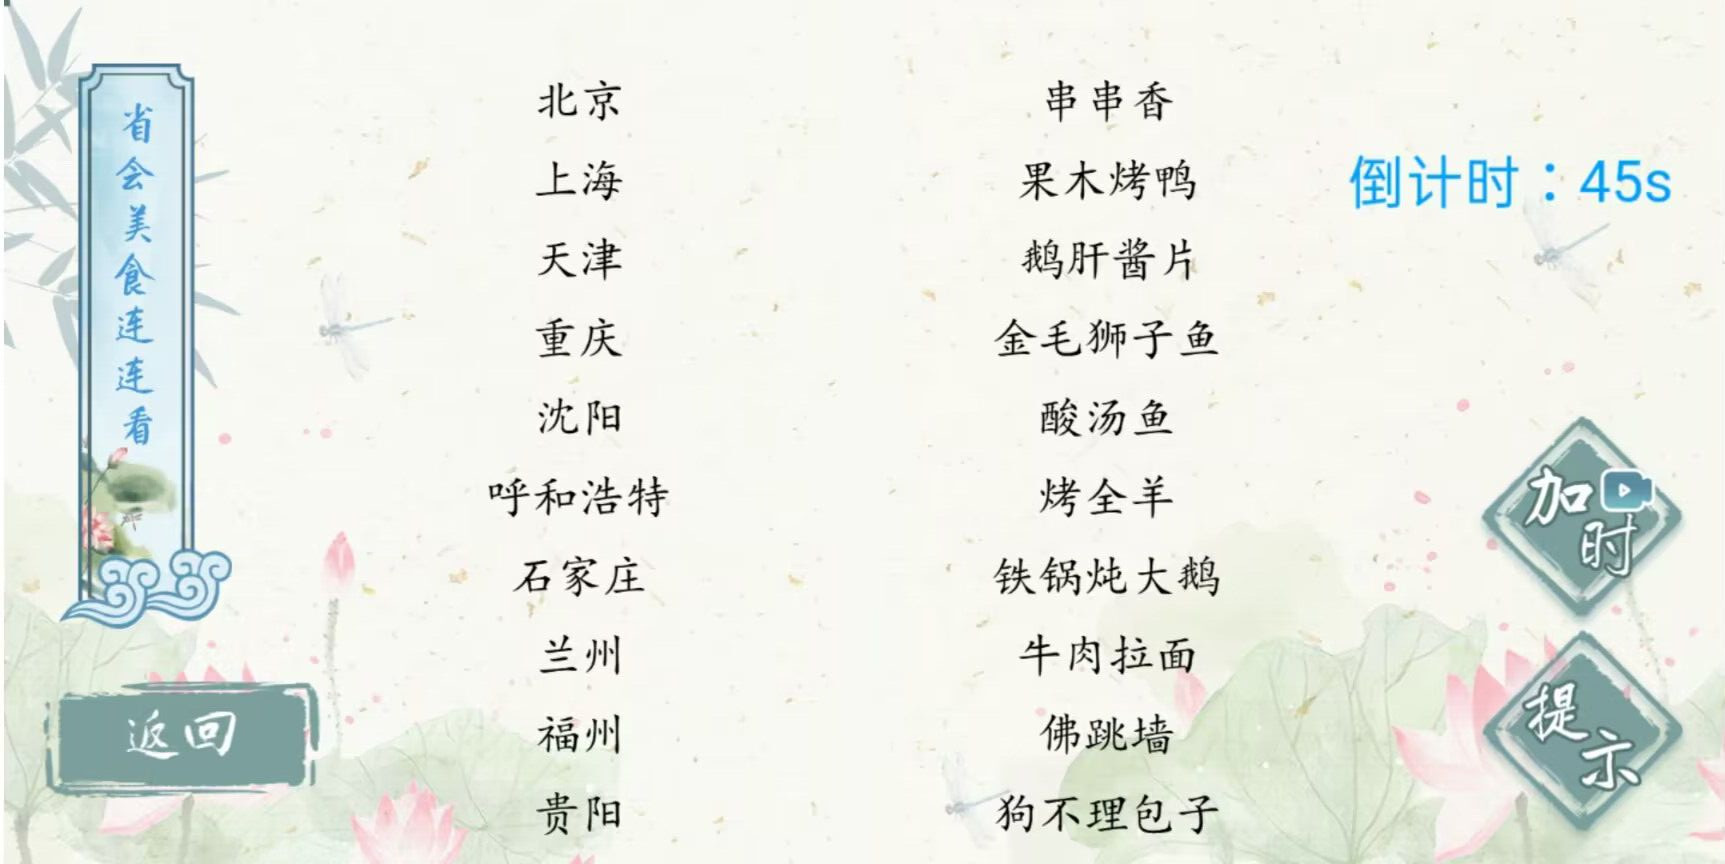 省会美食连连看
北京
上海
天津
重庆
沈阳
呼和浩特
石家庄
兰州
福州
贵阳
串串香
果木烤鸭
鹅肝酱片
金毛狮子鱼
酸汤鱼
烤全羊
铁锅炖大鹅
牛肉拉面
佛跳墙
狗不理包子
倒计时：45s
加时
提示
返回